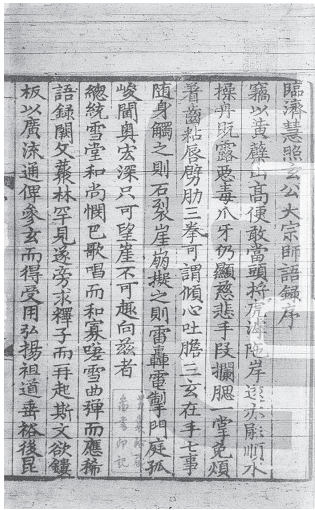 臨濟慧照玄公大宗師語録序
竊以黃蘗山高便敢當頭捋虎滹陁岸遠亦能順水
操舟既露惡毒爪牙仍顯慈悲手段攔腮一掌免煩
着齒黏唇劈肋三拳可謂傾心吐膽三玄在手七事
随身觸之則石裂崖崩擬之則雷轟電掣門庭孤
峻閫奥宏深只可望崖不可趣向兹者
總統雪堂和尚憫巴歌唱而和寡蹇雪曲彈而應稀
語録闕文叢林罕見遂旁求釋子而再起斯文欲鏤
板以廣流通俾參玄而得受用弘揚祖道垂裕後昆